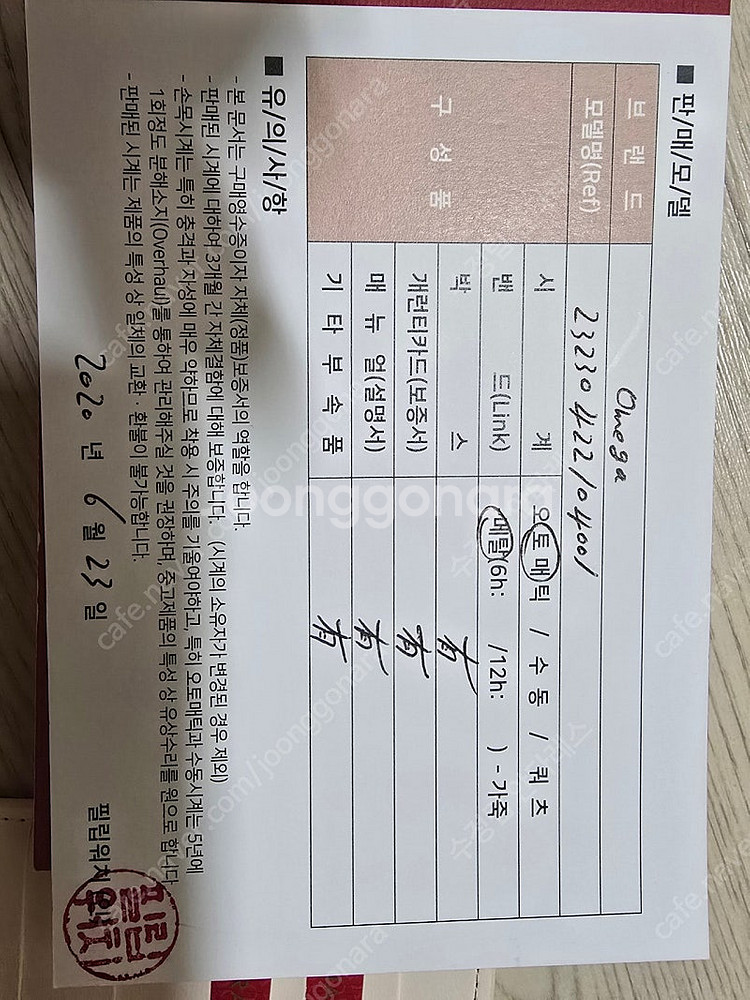 ■ 판/매/모/델
브 랜 드 Omega
모델명(Ref) 23230422104001
구 성 품
시 계 오토매틱 / 수 동 / 쿼 츠
밴 드(Link) 메탈(6h: /12h: ) - 가죽
박 스 有
개런티카드(보증서) 有
매 뉴 얼(설명서) 有
기 타 부 속 품 有
■ 유/의/사/항
- 본 문서는 구매영수증이자 자체(정품)보증서의 역할을 합니다.
- 판매된 시계에 대하여 3개월 간 자체결함에 대해 보증합니다. (시계의 소유자가 변경된 경우 제외)
- 손목시계는 특히 충격과 자성에 매우 약하므로 착용 시 주의를 기울여야하고, 특히 오토매틱과 수동시계는 5년에
1회정도 분해소지(Overhaul)를 통하여 관리해주실 것을 권장하며, 중고제품의 특성 상 유상수리를 원으로 합니다.
- 판매된 시계는 제품의 특성 상 일체의 교환 · 환불이 불가능합니다.
2020 년 6 월 23 일
필립워치
필립워치
joonggonara
cafe.naver.com/joonggonara